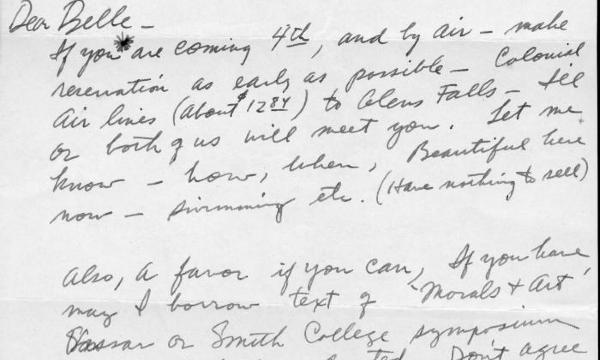 Dear Belle —
If you are coming 4th, and by air — make
reservation as early as possible — Colonial
Air lines (About $12 84) to Glens Falls — I'll
or both of us will meet you. Let me
know — how, when, Beautiful here
now — swimming etc. (Have nothing to sell)
Also, a favor if you can, If you have
may I borrow text of 'Morals & Art'
Vassar or Smith College symposium
Don't agree